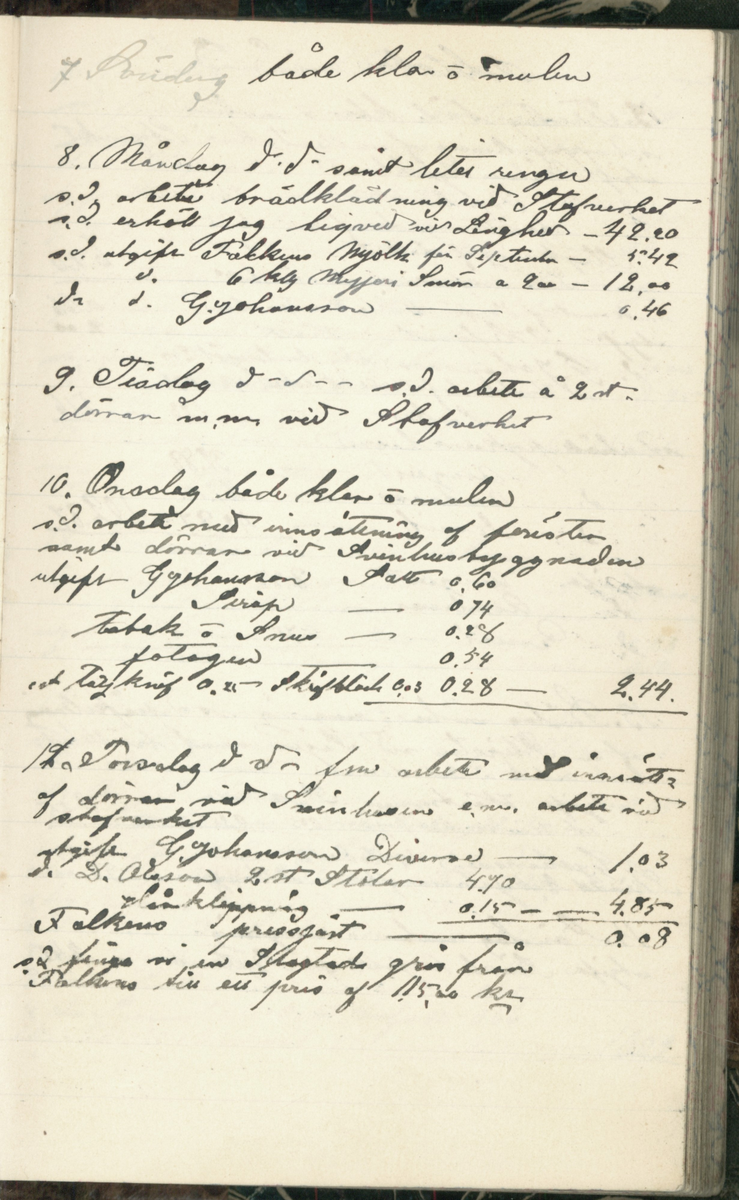 7 Söndag både klar o mulen
8. Måndag d. d- samt litet rengn
s.d. arbete brädklädning vid Stafverket
s.d. erhöll jag liqved vid Linghed - 42.20
s.d. utgift Falkens Mjölk för Septembr - 5.42
d. 6 klg Mejjeri Smör a 2 00 - 12,00
d- d. G. Johansson — 0.46
9. Tisdag d - d - - s.d. arbete å 2 st-
dörrar m.m. vid Stafverket
10. Onsdag både klar o mulen
s.d. arbete med innsättning af fenster
samt dörrar vid Svinhusbyggnaden
utgift G Johansson Salt 0.60
Sirap — 0.74
tobak o Snus — 0.28
fotogen 0.54
ett täljknif 0.25 Skrifbläck 0.03 0.28 — 2.44.
11. Torsdag d d - fm arbete med innsätt=
af dörrar vid Svinhusen e.m. arbete vid
stafverket
utgift G Johansson Diverse — 1.03
d. D. Olsson 2 st Stolar 4.70
klippning — 0.15 - — 4.85
Falkens pressjäst — 0.08
s.d. finge vi en Slagtad gris från
Falkens till ett pris af 115,20 kr